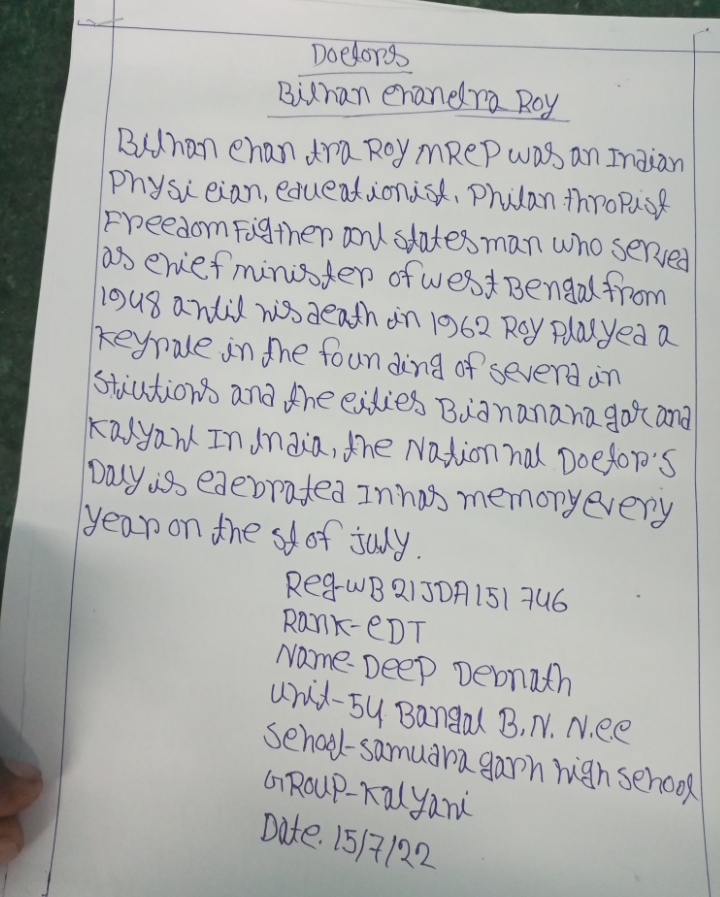 Doctors
Bidhan chandra Roy
Bidhan chan dra Roy MRCP was an Indian
Physi cian, educationist, Philan thropist
Freedom Figther and states man who served
as chief minister of west Bengal from
1948 antil his death in 1962 Roy Plalyed a
Keyrale in the foun ding of severd in
stiutions and the cities Bidhananagar and
Kalyani In India, the Nation nal Doctor's
Daly is ceebrated In has memory every
year on the st of july.
Reg-WB21JDA151746
Rank-CDT
Name-Deep Debnath
unit-54 Bangal B.N. N.C.C
school-samudra garh high school
GROUP-Kalyani
Date. 15/7/22